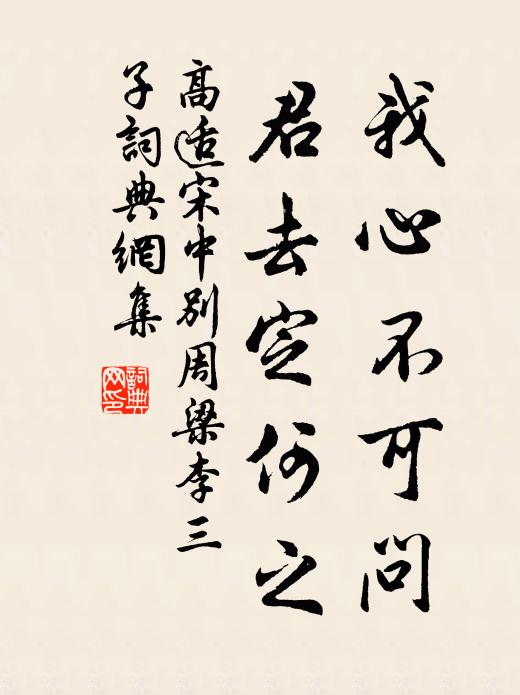 我心不可問
君去定何之
高适宋中別周梁李三
子詞典網集
詞典
网印